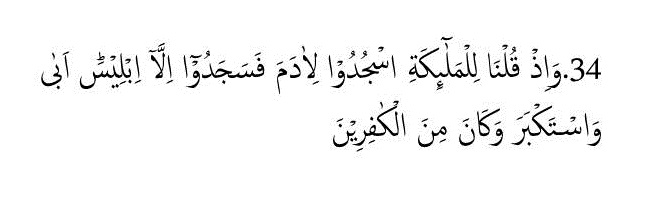 34.وَاِذْ قُلْنَا لِلْمَلٰۤىِٕكَةِ اسْجُدُوْا لِاٰدَمَ فَسَجَدُوْٓا اِلَّآ اِبْلِيْسَۗ اَبٰى
وَاسْتَكْبَرَ وَكَانَ مِنَ الْكٰفِرِيْنَ